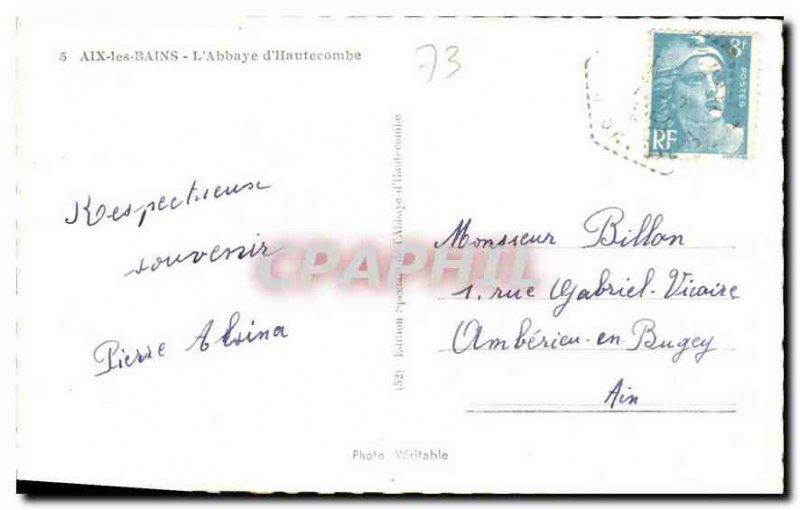 5 AIX-les-BAINS - L'Abbaye d'Hautecombe
73
8f
POSTES
RF
Respectueux
souvenir
Pierre Alsina
(52) Edition Spéciale de l'Abbaye d'Hautecombe
CPAPHIL
Monsieur Billon
1, rue Gabriel-Vicaire
Ambérieu-en-Bugey
Ain
Photo Véritable